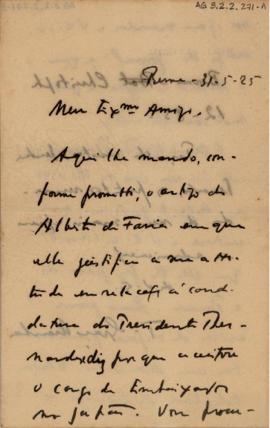 AG 5.2.2.271-A
Berne - 31-5-25
Meu Exmo Amigo.
Aqui lhe mando, con-
forme prometti, o artigo do
Alberto de Faria em que
elle justifica a sua atti-
tude em relação á candi-
datura do Presidente Ber-
nardes e diz por que acceitou
o cargo de Embaixador
no Japão. Vou